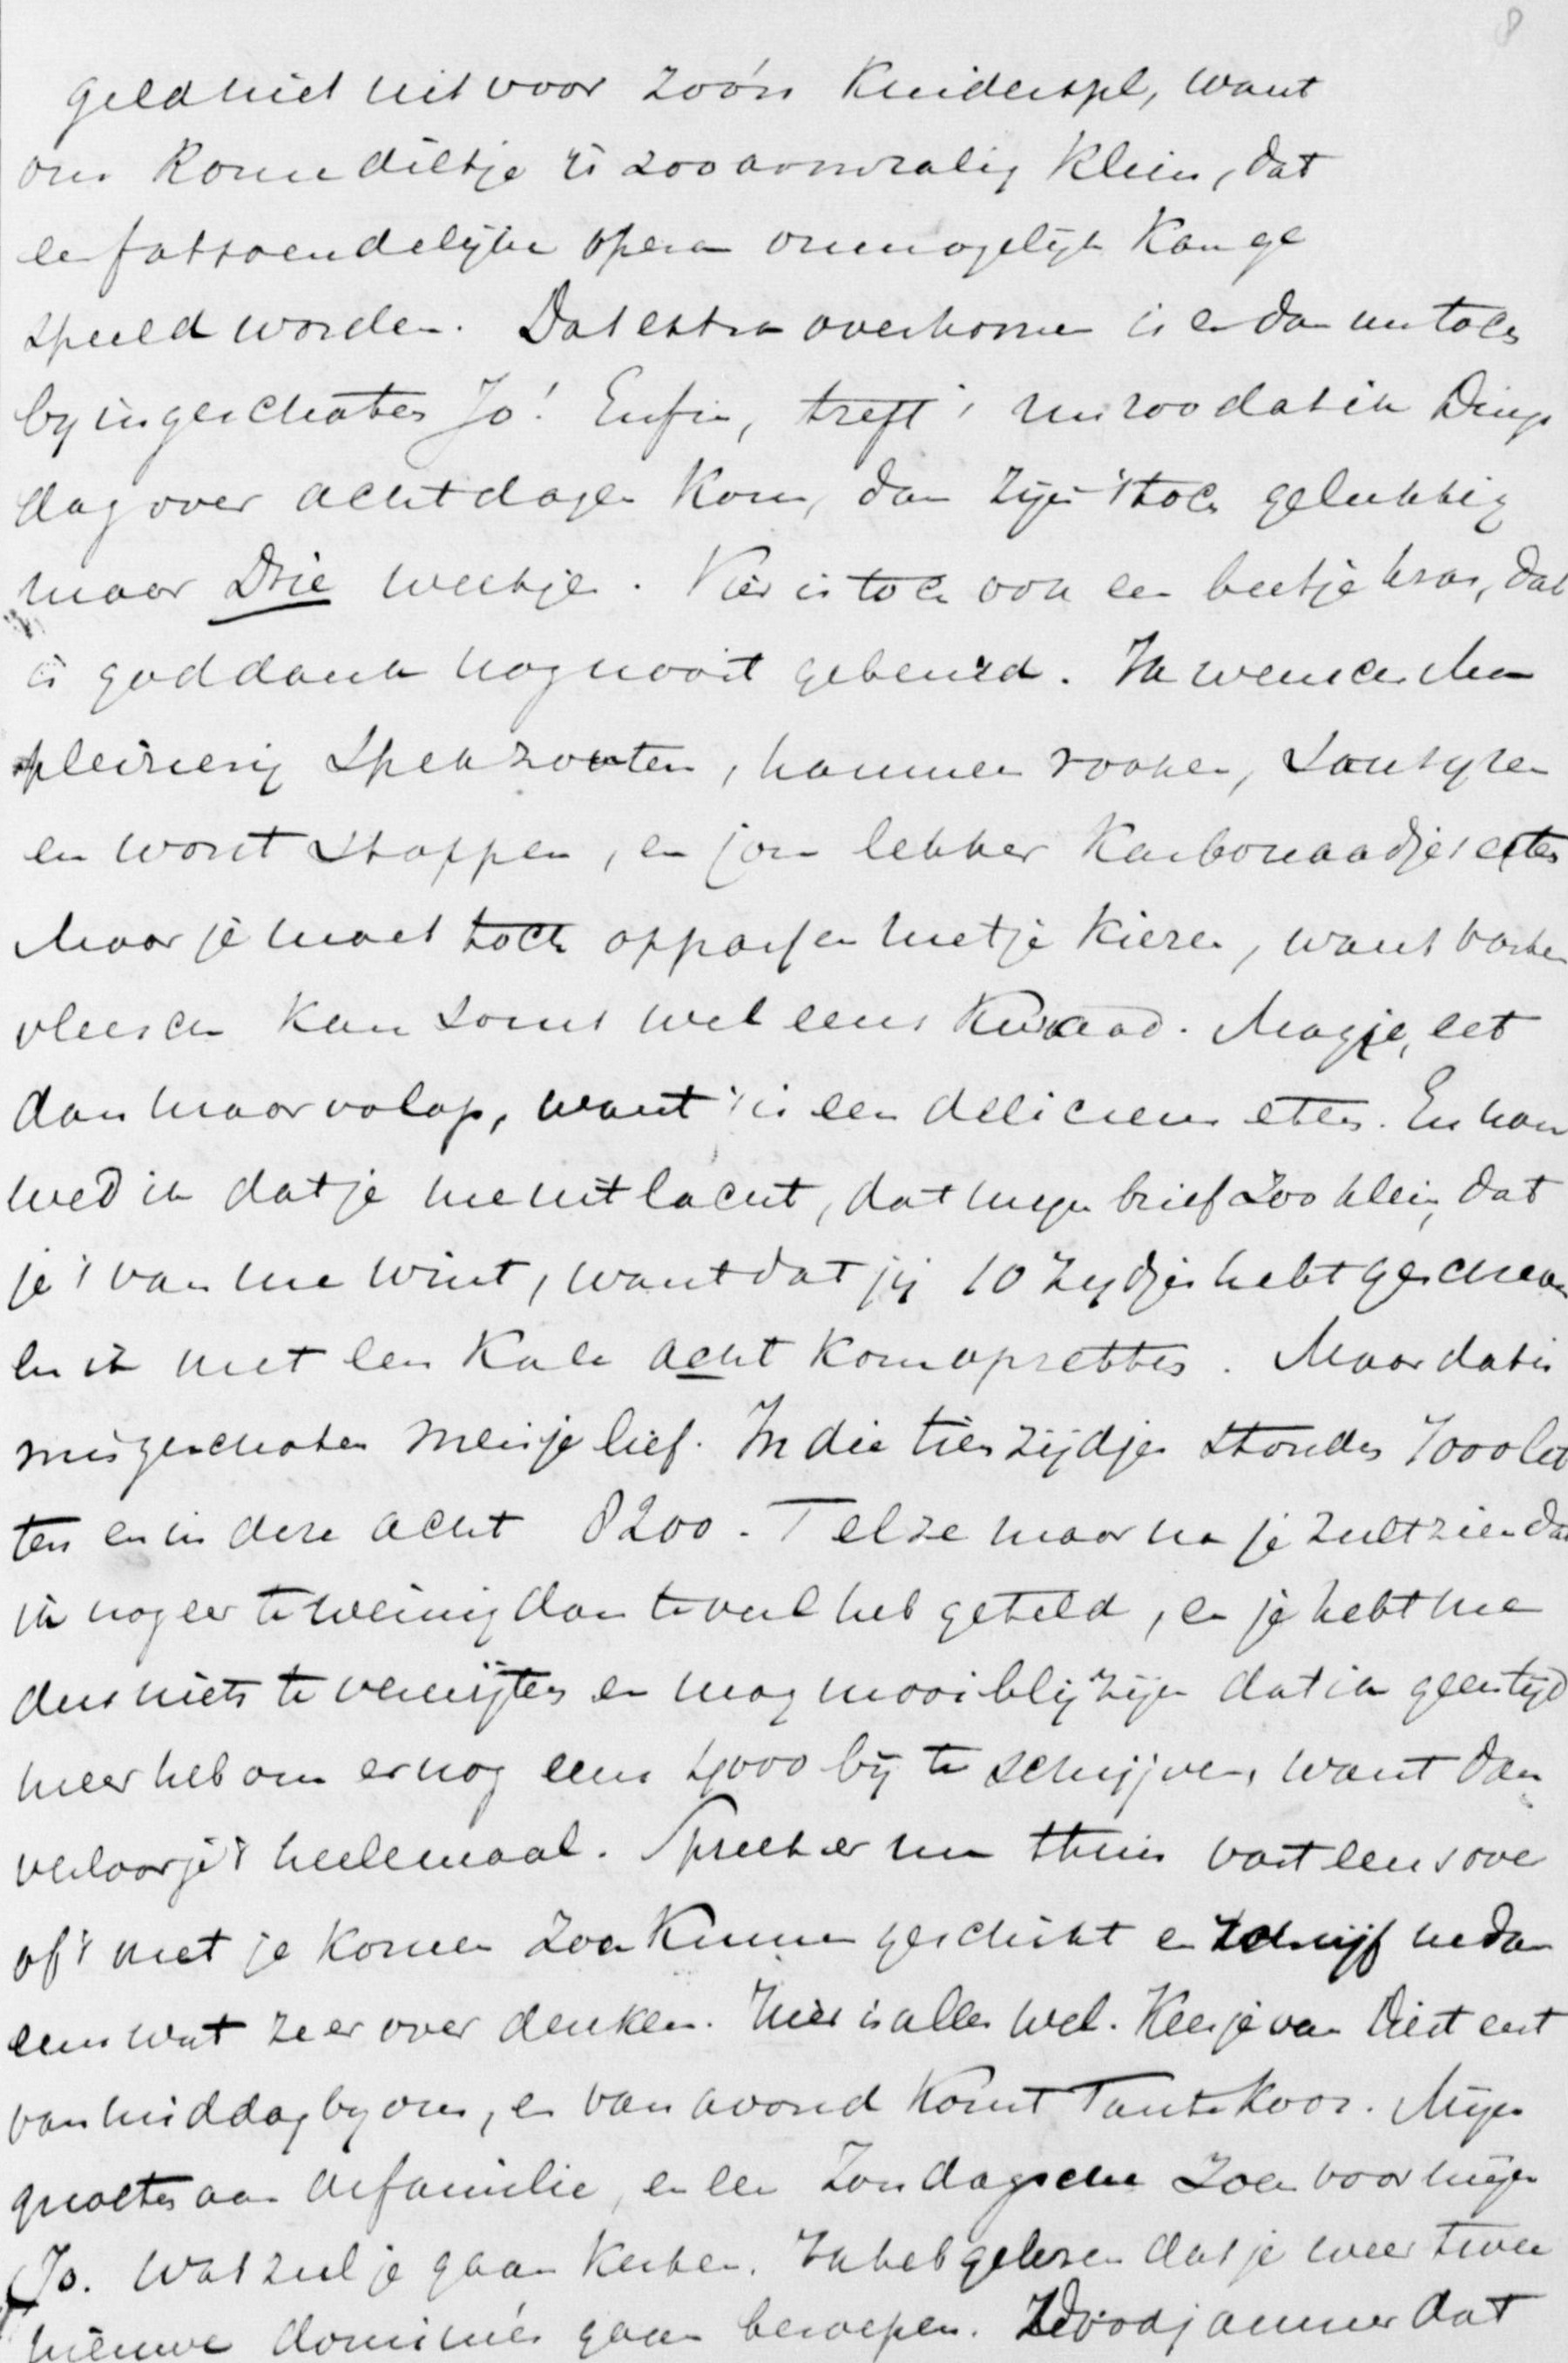 8
geld niet uit voor zoo'n kinderspel, want
ons komedietje is zoo armzalig klein, dat
er fatsoendelijke opera onmogelijk kan ge
speeld worden. Dat extra overkomen is er dan nu toch
by ingeschoten Jo! Enfin, treft 't nu zoo dat ik Dings
dag over acht dagen kom, dan zijn 't toch gelukkig
maar Drie weekjes. Vier is toch ook een beetje kras, dat
is goddank nog nooit gebeurd. Ik wensch Moe
pleizierig spekzouten, hammen rooken,
en worst stoppen, en jou lekker karbonaadjes eten
Maar je moet toch oppassen met je kiezen, want varken
vleesch kan soms wel eens kwaad. Mag je, eet
dan maar volop, want 't is een delicieus eten. En nou
wed ik dat je me uitlacht, dat mijn brief zoo klein, dat
je 't van me wint, want dat jij 10 zydjes hebt geschreven
en ik met een kale acht kom opzetten. Maar dat is
misgeschoten meisje lief. In die tien zijdjes stonden 7000 let
ters en in deze acht 8200. Tel ze maar na je zult zien dat
ik nog eer te weinig dan te veel heb geteld, en je hebt me
dus niets te verwijten en mag mooi blij zijn dat ik geen tijd
meer heb om er nog eens 4000 bij te schrijven, want dan
verloor je 't heelemaal. Spreek er nu thuis vast eens over
of 't met je komen zou kunnen geschikt en schrijf me dan
eens wat ze er over denken. Hier is alles wel. Keesje van Diest eet
van middag by ons, en van avond komt Tante Koos. Mijn
groeten aan de familie, en een Zondagsche Zoen voor mijn
Jo. Wat zul je gaan kerken. Ik heb gelezen dat je weer twee
nieuwe dominé's gaan beroepen. Doodjammer dat